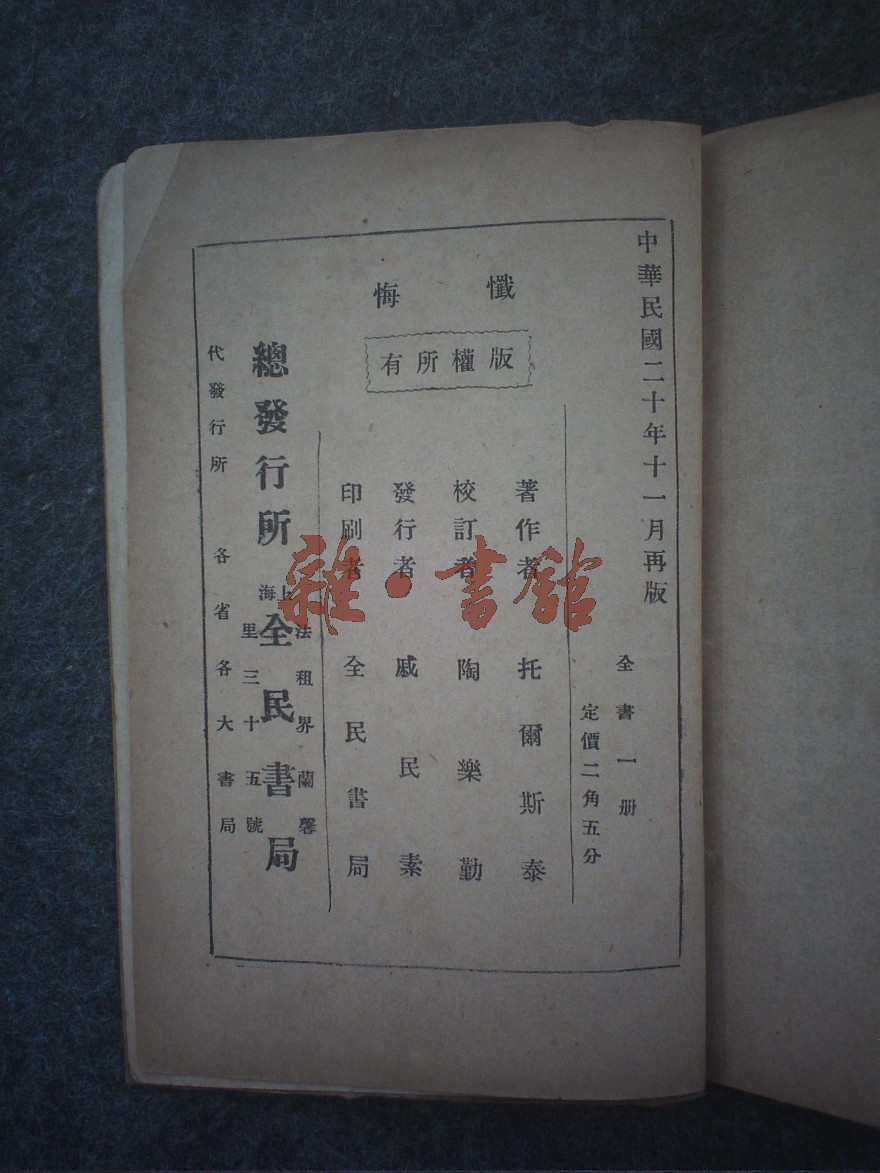 中華民國二十年十一月再版
全書一册
定價二角五分
懺悔
版權所有
著作者 托爾斯泰
校訂者 陶樂勤
發行者 戚民素
印刷者 全民書局
總發行所 上海 全民書局
法租界蘭馨
里三十五號
代發行所 各省各大書局
雜·書館